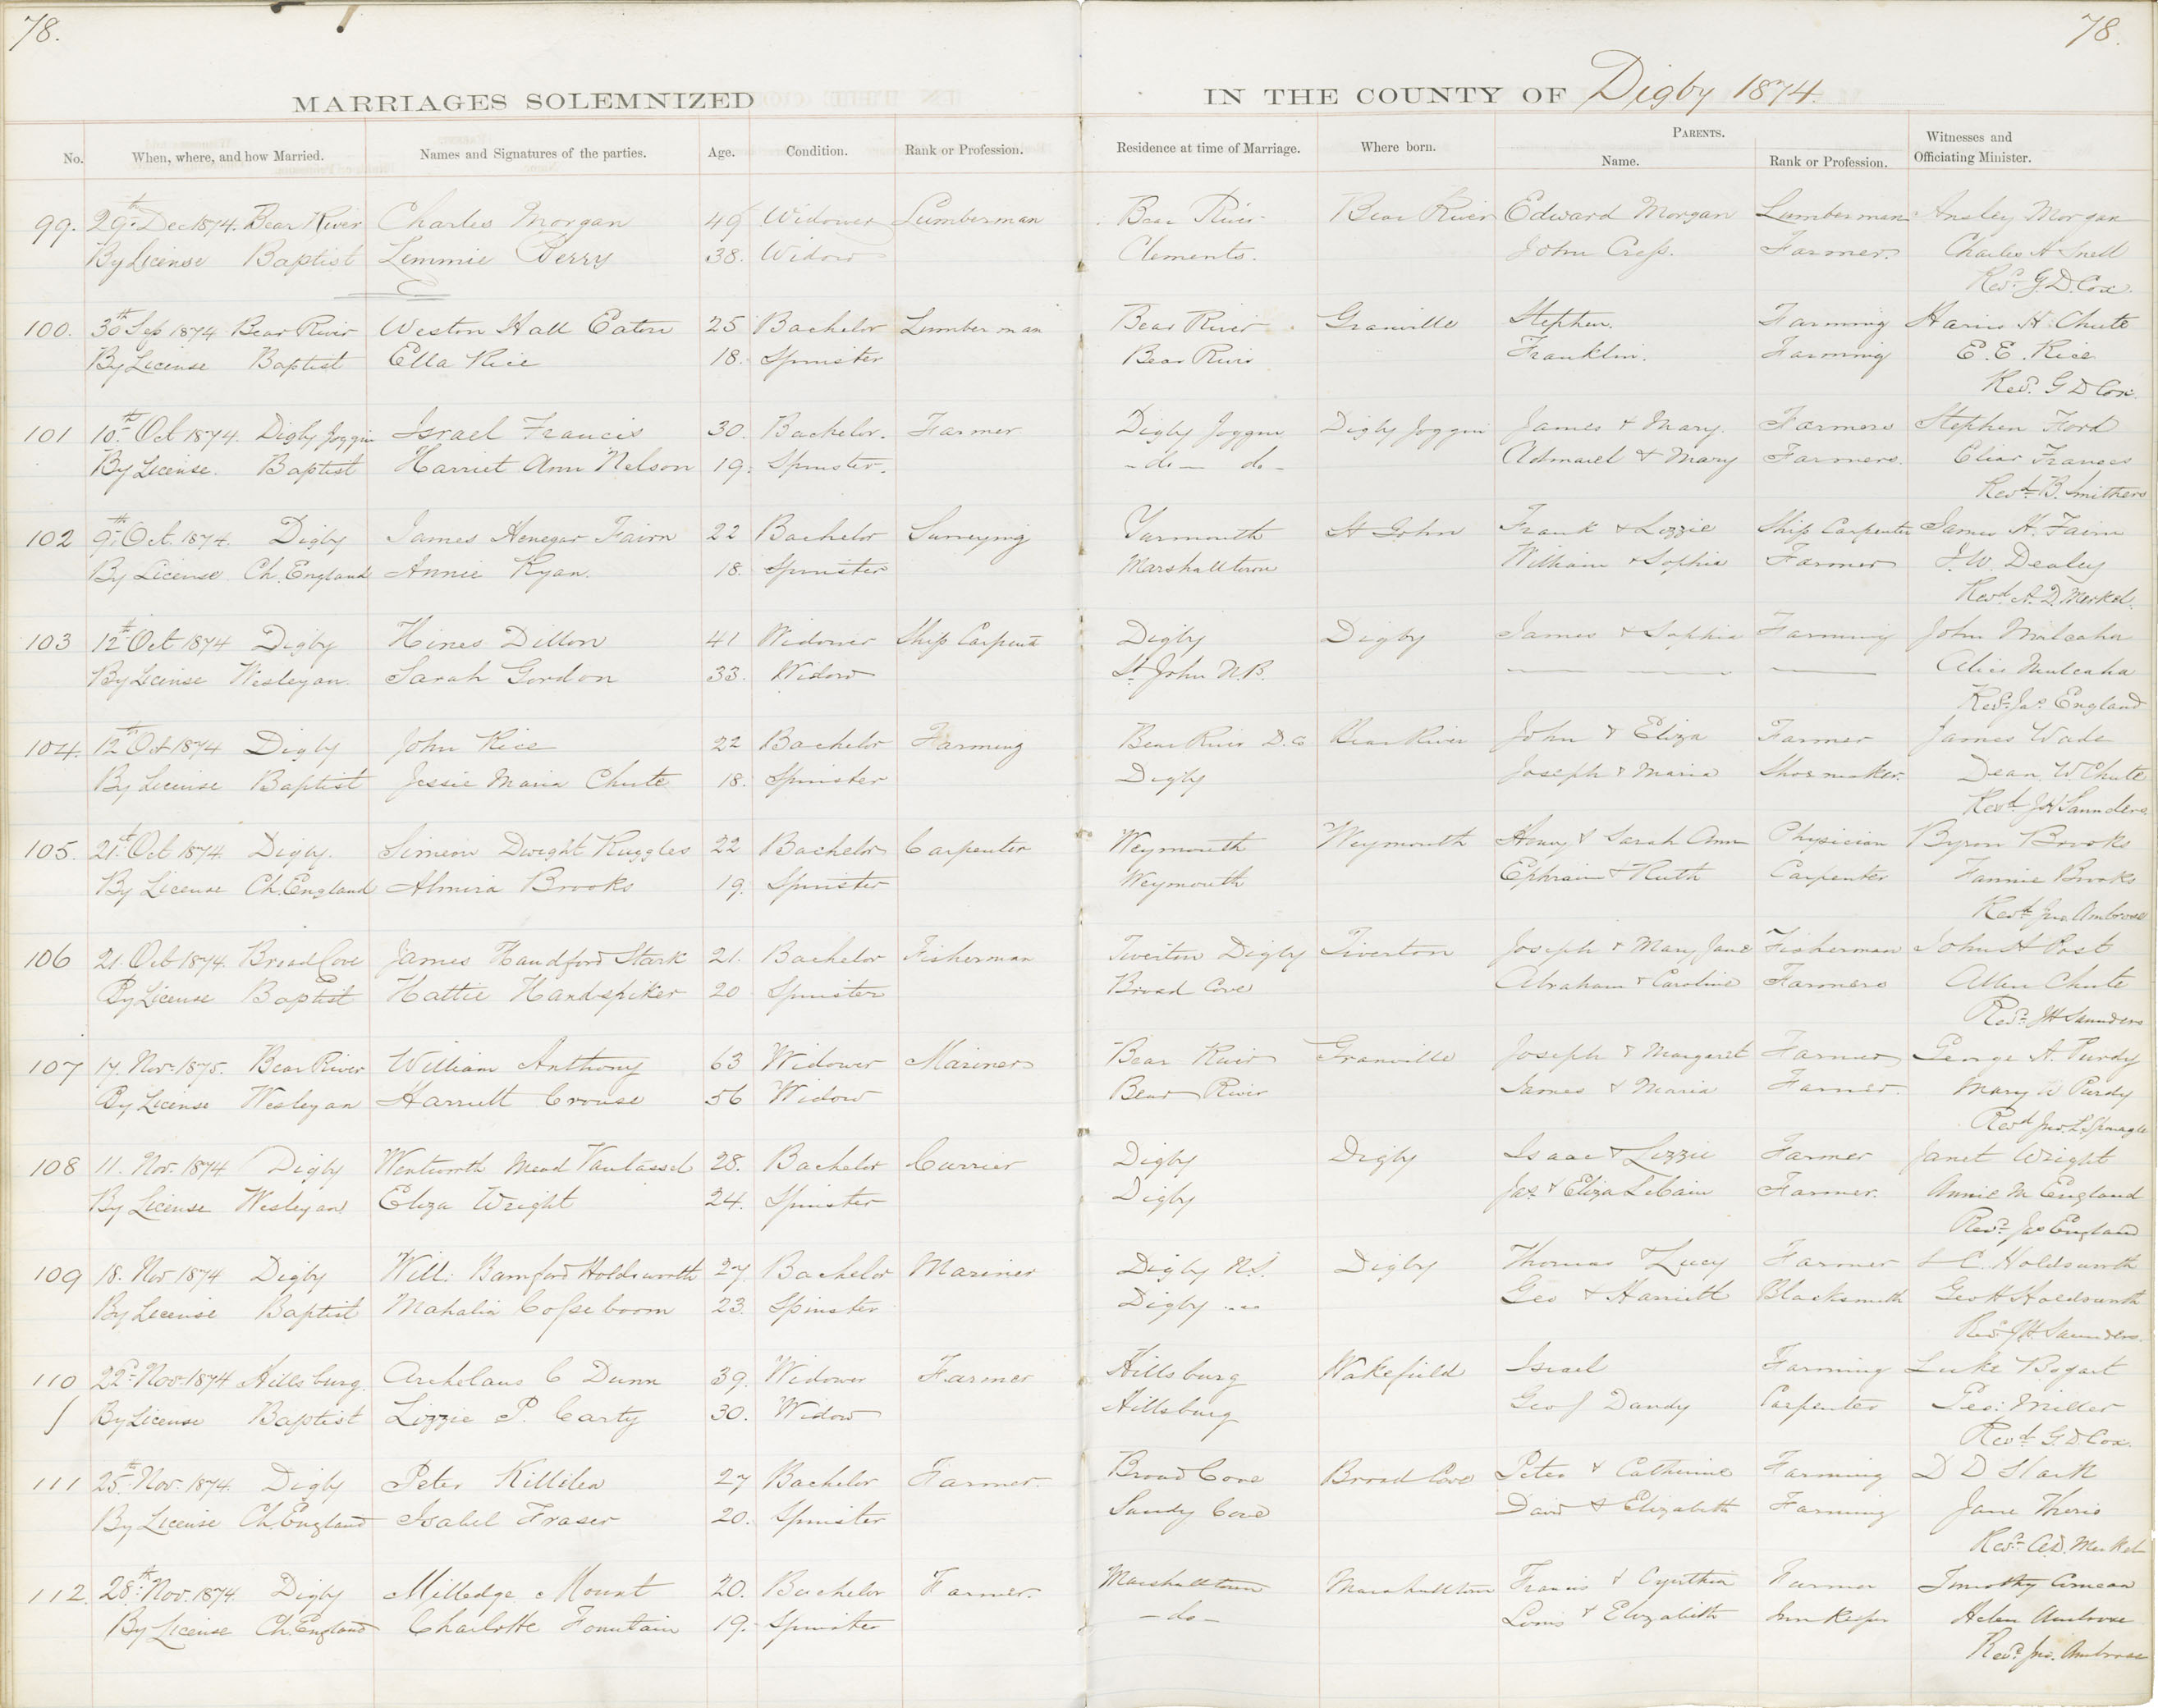 78.
78.
MARRIAGES SOLEMNIZED IN THE COUNTY OF Digby 1874.
No. When, where, and how Married. Names and Signatures of the parties. Age. Condition. Rank or Profession. Residence at time of Marriage. Where born. PARENTS. Name. Rank or Profession. Witnesses and Officiating Minister.
99. 29th Dec 1874. Bear River Charles Morgan 49 Widower Lumberman Bear River Bear River Edward Morgan Lumberman Ansley Morgan
By License Baptist Lemmie Berry 38. Widow Clements. John Cress. Farmer. Charles H Snell
Revd. G. D. Cox.
100. 30th Sep 1874 Bear River Weston Hall Eaton 25 Bachelor Lumberman Bear River Granville Stephen. Farming Harris H. Chute
By License Baptist Ella Rice 18. Spinster Bear River Franklin. Farming E. E. Rice
Revd. G D Cox.
101 10th Oct 1874. Digby Joggin Israel Francis 30. Bachelor. Farmer Digby Joggin Digby Joggin James & Mary. Farmers Stephen Ford
By License. Baptist Harriet Ann Nelson 19. Spinster. -do- do- & Mary Farmers. Frances
Revd. B. Smithers
102 9th Oct. 1874. Digby James Henegar Fairn 22 Bachelor Surveying Yarmouth St John Frank & Lizzie Ship Carpenter James H. Fairn
By License Ch. England Annie Ryan. 18. Spinster Marshalltown William & Sophia Farmer J. W. Dealey
Revd. A. D. Merkel.
103 12th Oct 1874 Digby Hines Dillon 41 Widower Ship Carpent Digby Digby James & Sophia Farming John Mulcaha
By License Wesleyan. Sarah Gordon 33. Widow St. John N.B. Alice Mulcaha
Revd. Jas. England
104. 12th Oct 1874 Digby John Rice 22 Bachelor Farming Bear River D. Co Bear River John & Eliza Farmer James Wade
By License Baptist Jessie Maria Chute 18. Spinster Digby Joseph & Maria Shoemaker. Dean W. Chute
Revd J H Saunders
105. 21st Oct 1874 Digby. Simeon Dwight Ruggles 22 Bachelor Carpenter Weymouth Weymouth Henry & Sarah Ann Physician Byron Brooks
By License Ch. England Almira Brooks 19. Spinster Weymouth Ephraim & Ruth Carpenter Fannie Brooks
Revd. Jno. Ambrose
106 21. Oct 1874. Broad Cove James Handford Stark 21. Bachelor Fisherman Tiverton Digby Tiverton Joseph & Mary Jane Fisherman John H Post
By License Baptist Hattie Handspiker 20 Spinster Broad Cove Abraham & Caroline Farmers Allen Chute
Revd. J H Saunders
107 17. Nov. 1875. Bear River William Anthony 63 Widower Mariner Bear River Granville Joseph & Margaret Farmer George A. Purdy
By License Wesleyan Harriett Crouse 56 Widow Bear River James & Maria Farmer. Mary W Purdy
Revd Jno. L. Sponagle
108 11. Nov. 1874 Digby Wentworth Mead Vantassel 28. Bachelor Currier Digby Digby Isaac & Lizzie Farmer Janet Wright
By License Wesleyan Eliza Wright 24. Spinster Digby Jas. & Eliza LeCain Farmer. Annie M England
Revd. Jas England
109 18. Nov 1874 Digby Will: Bamford Holdsworth 27. Bachelor Mariner Digby N.S. Digby Thomas & Lucy Farmer C. Holdsworth
By License Baptist Mahalia Cosseboom 23. Spinster Digby " " Geo & Harriett Blacksmith Geo H Holdsworth
Revd J H Saunders.
110 22d Nov. 1874 Hillsburg. Archelaus C Dunn 39. Widower Farmer Hillsburg Wakefield Israel Farming Luke Bogart
By License Baptist Lizzie P. Carty 30. Widow Hillsburg Geo J Dandy Carpenter Geo: Miller
Revd. G. D. Cox.
111 25th Nov. 1874. Digby Peter Killilea 27 Bachelor Farmer. Broad Cove Broad Cove Peter & Catherine Farming D D Stark
By License Ch. England Isabel Fraser 20. Spinster Sandy Cove David & Elizabeth Farming Jane
Revd. A.D. Merkel
112. 28th Nov. 1874. Digby Milledge Mount 20. Bachelor Farmer. Marshalltown Marshalltown Francis & Cynthia Farmer Timothy Comeau
By License Ch. England Charlotte Fountain 19. Spinster -do- Louis & Elizabeth Inn Keeper Helen Ambrose
Revd. Jno. Ambrose